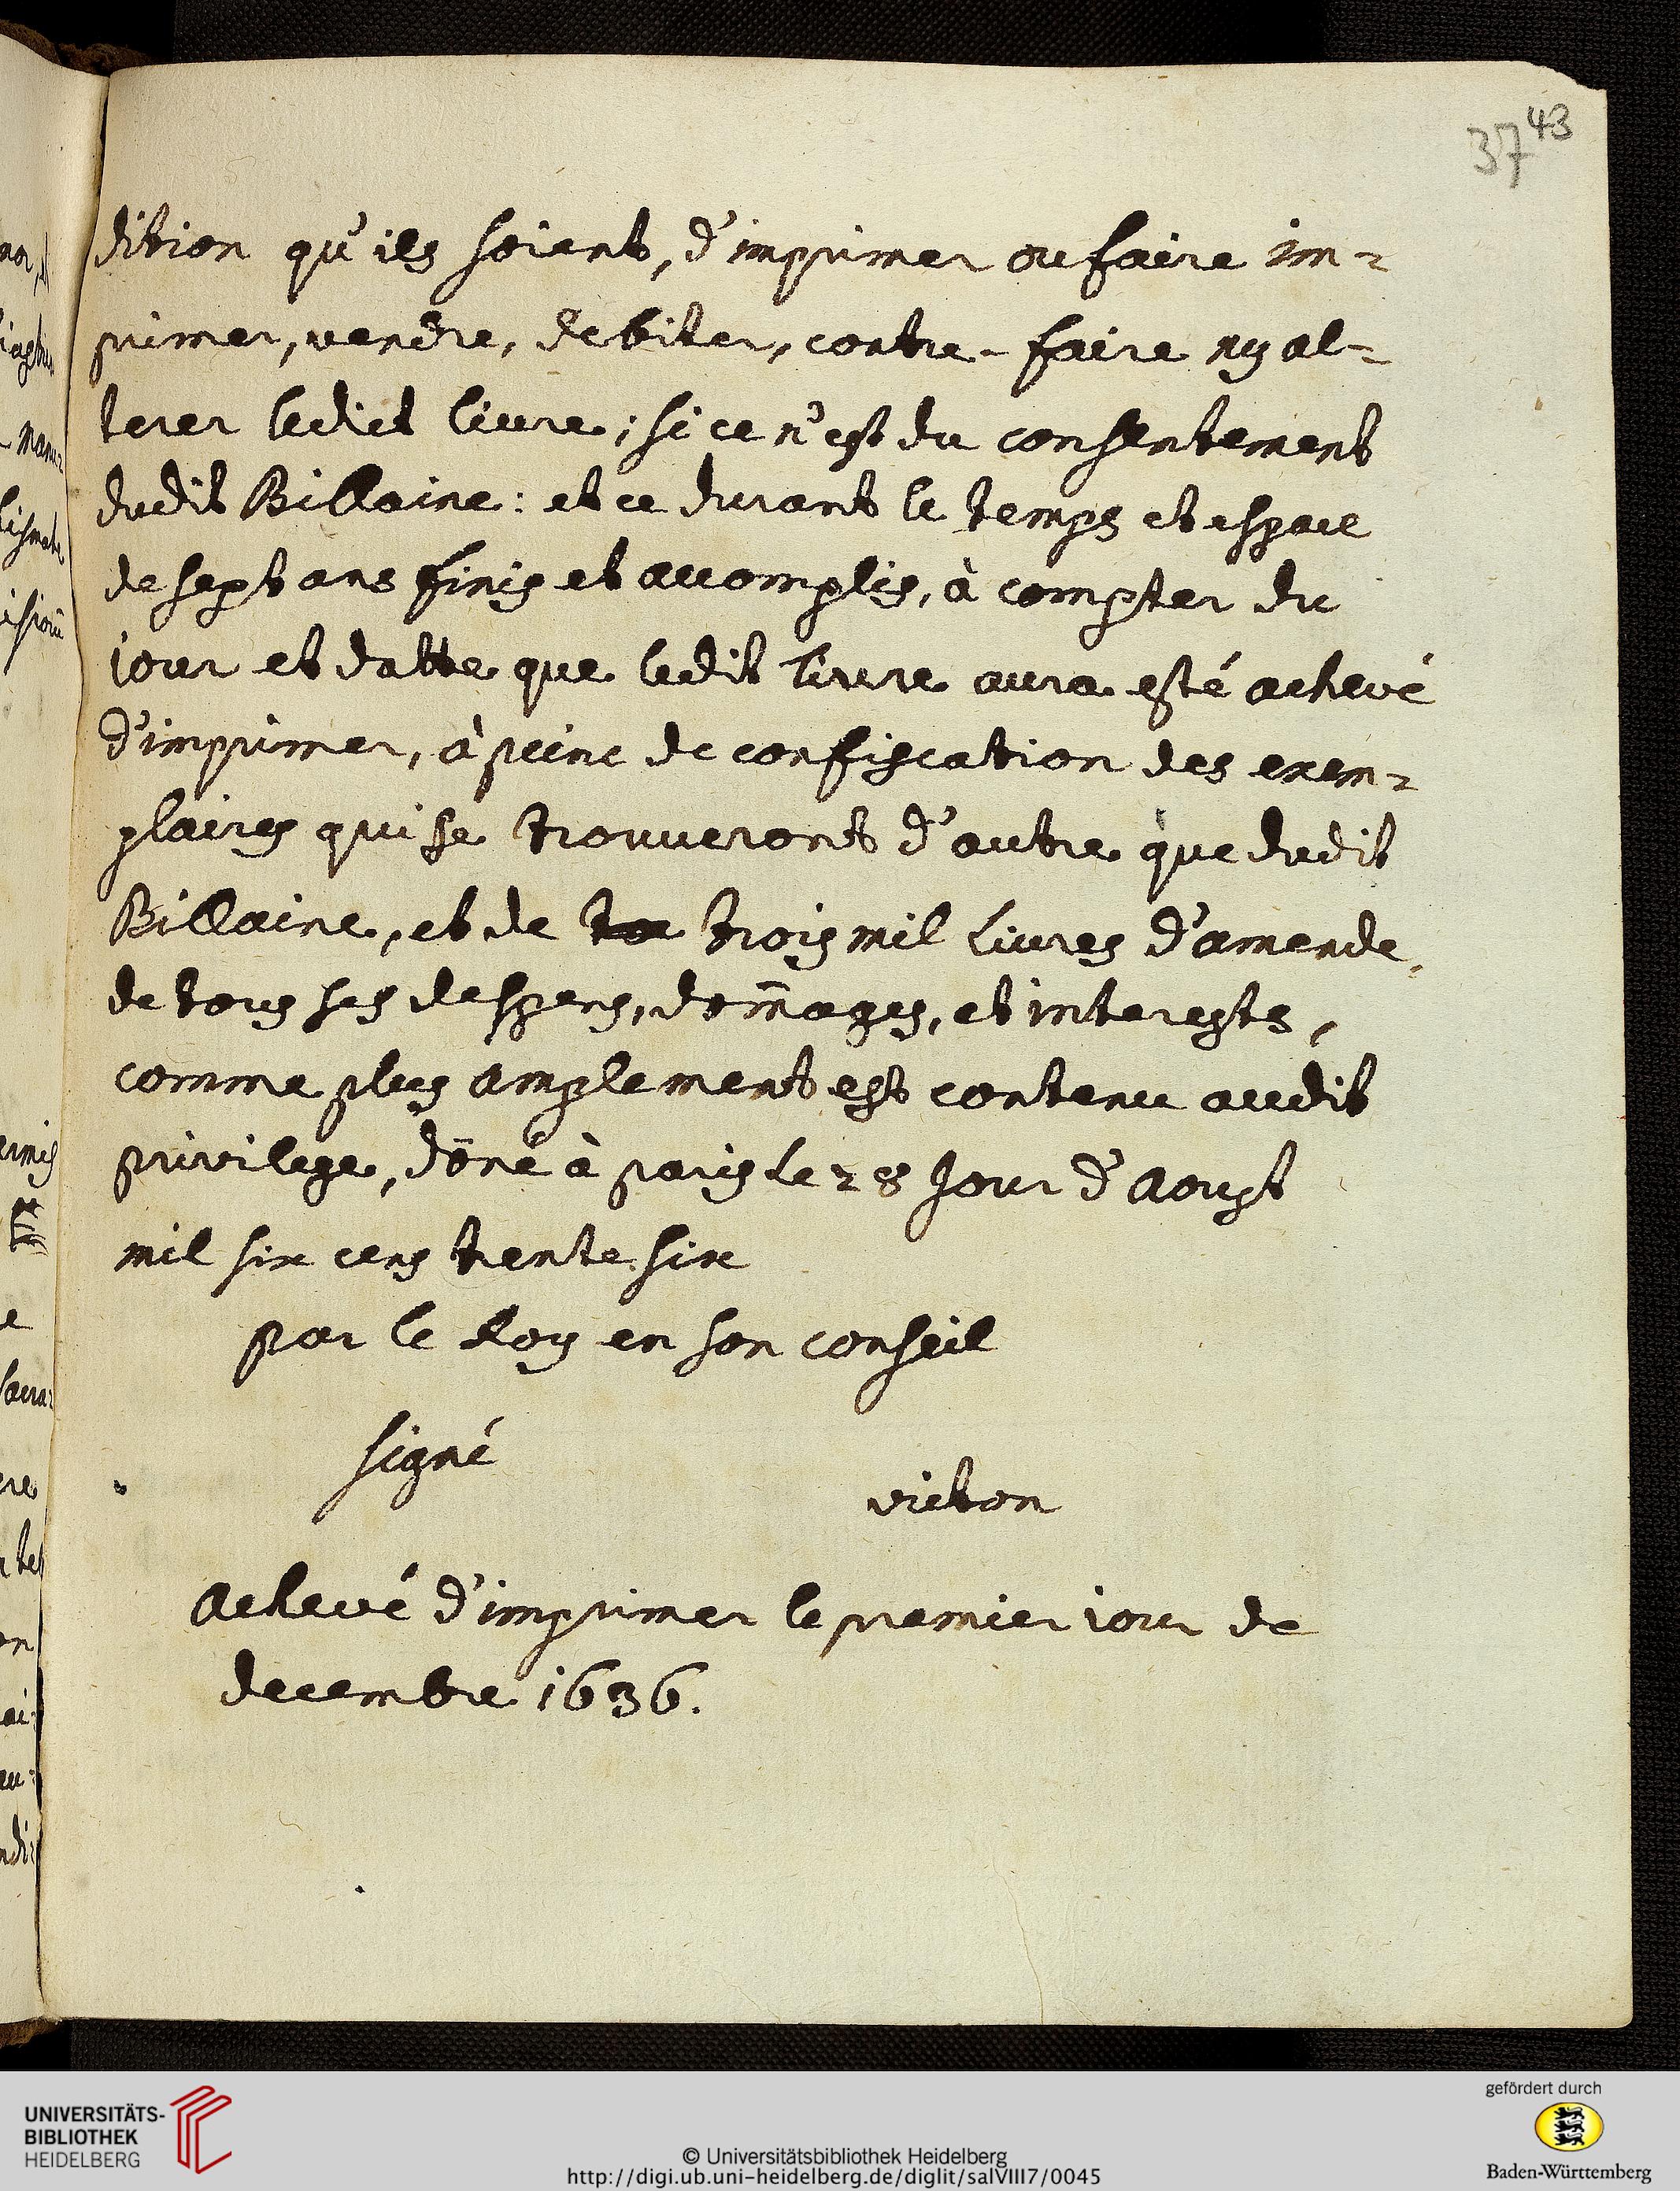 37 43
dition qu'ils soient, d'imprimer ou faire im=
primer, vendre, debiter, contre-faire ny al=
terer ledict livre; si ce n'est du consentement
dudit Billaine: et ce durant le temps et espace
de sept ans finis et accomplis, à compter du
iour et datte que ledit livre aura esté achevé
d'imprimer, à peine de confiscation des exem=
plaires qui se trouveront d'autre que dudit
Billaine, et de trois mil livres d'amende,
de tous ses despens, dom̄ages, et interests,
comme plus amplement est contenu audit
privilege, dōné à paris le 28 Jour d'Aoust
mil six cens trente six
par le Roy en son conseil
signé
victon
Achevé d'imprimer le premier iour de
decembre 1636.
UNIVERSITÄTS-
BIBLIOTHEK
HEIDELBERG
© Universitätsbibliothek Heidelberg
http://digi.ub.uni-heidelberg.de/diglit/salVIII7/0045
gefördert durch
Baden-Württemberg